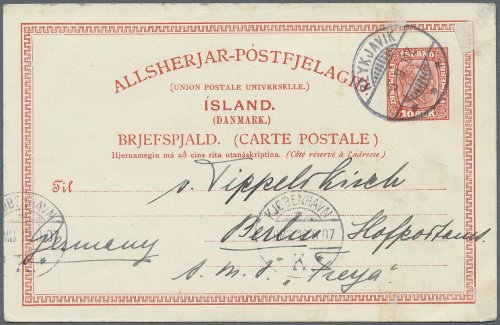 ALLSHERJAR-PÓSTFJELAGIÐ
(UNION POSTALE UNIVERSELLE.)
ÍSLAND.
(DANMARK.)
BRJEFSPJALD. (CARTE POSTALE)
Hjernamegin má að eins rita utanáskriptina. (Côté réservé à l'adresse.)
REYKJAVIK
ÍSLAND
10 AUR
Til
v. Tippelskirch
KJØBENHAVN
07
K
KJØBENHAVN
07
Germany
Berlin Hofpostamt
S. M. S. „Freya"